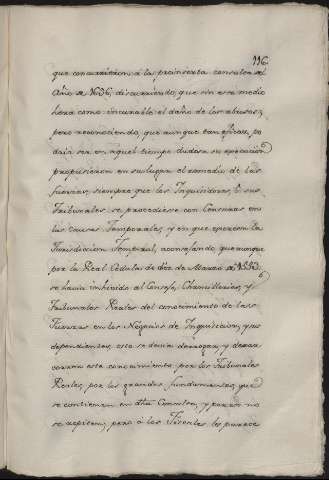 116.
que concurrieron, à la preinserta consulta del
Año de 1696, discurriendo, que sin este medio
hera como incurable el daño de los abusos,
pero reconociendo, que aunque tan eficaz, po
dria ser en aquel tiempo dudosa su execucion
propusieron en su lugar el remedio de las
fuerzas, siempre que los Inquisidores, ò sus
Tribunales se procediese con Censuras en
las Causas Temporales, y en que exercen la
Jurisdicion Temporal, aconsejando que aunque
por la Real Cedula de diez de Marzo de 1553
se havia inhivido al Consejo, Chancillerias, y
Tribunales Reales del conocimiento de las
Fuerzas en los Negocios de Inquisicion, y sus
dependientes, esta se devia derogar, y declarar
este conocimiento por los Tribunales
Reales, por los grandes fundamentos, que
se contienen en dha Consulta, y por eso no
se repiten; pero à los Fiscales les parece